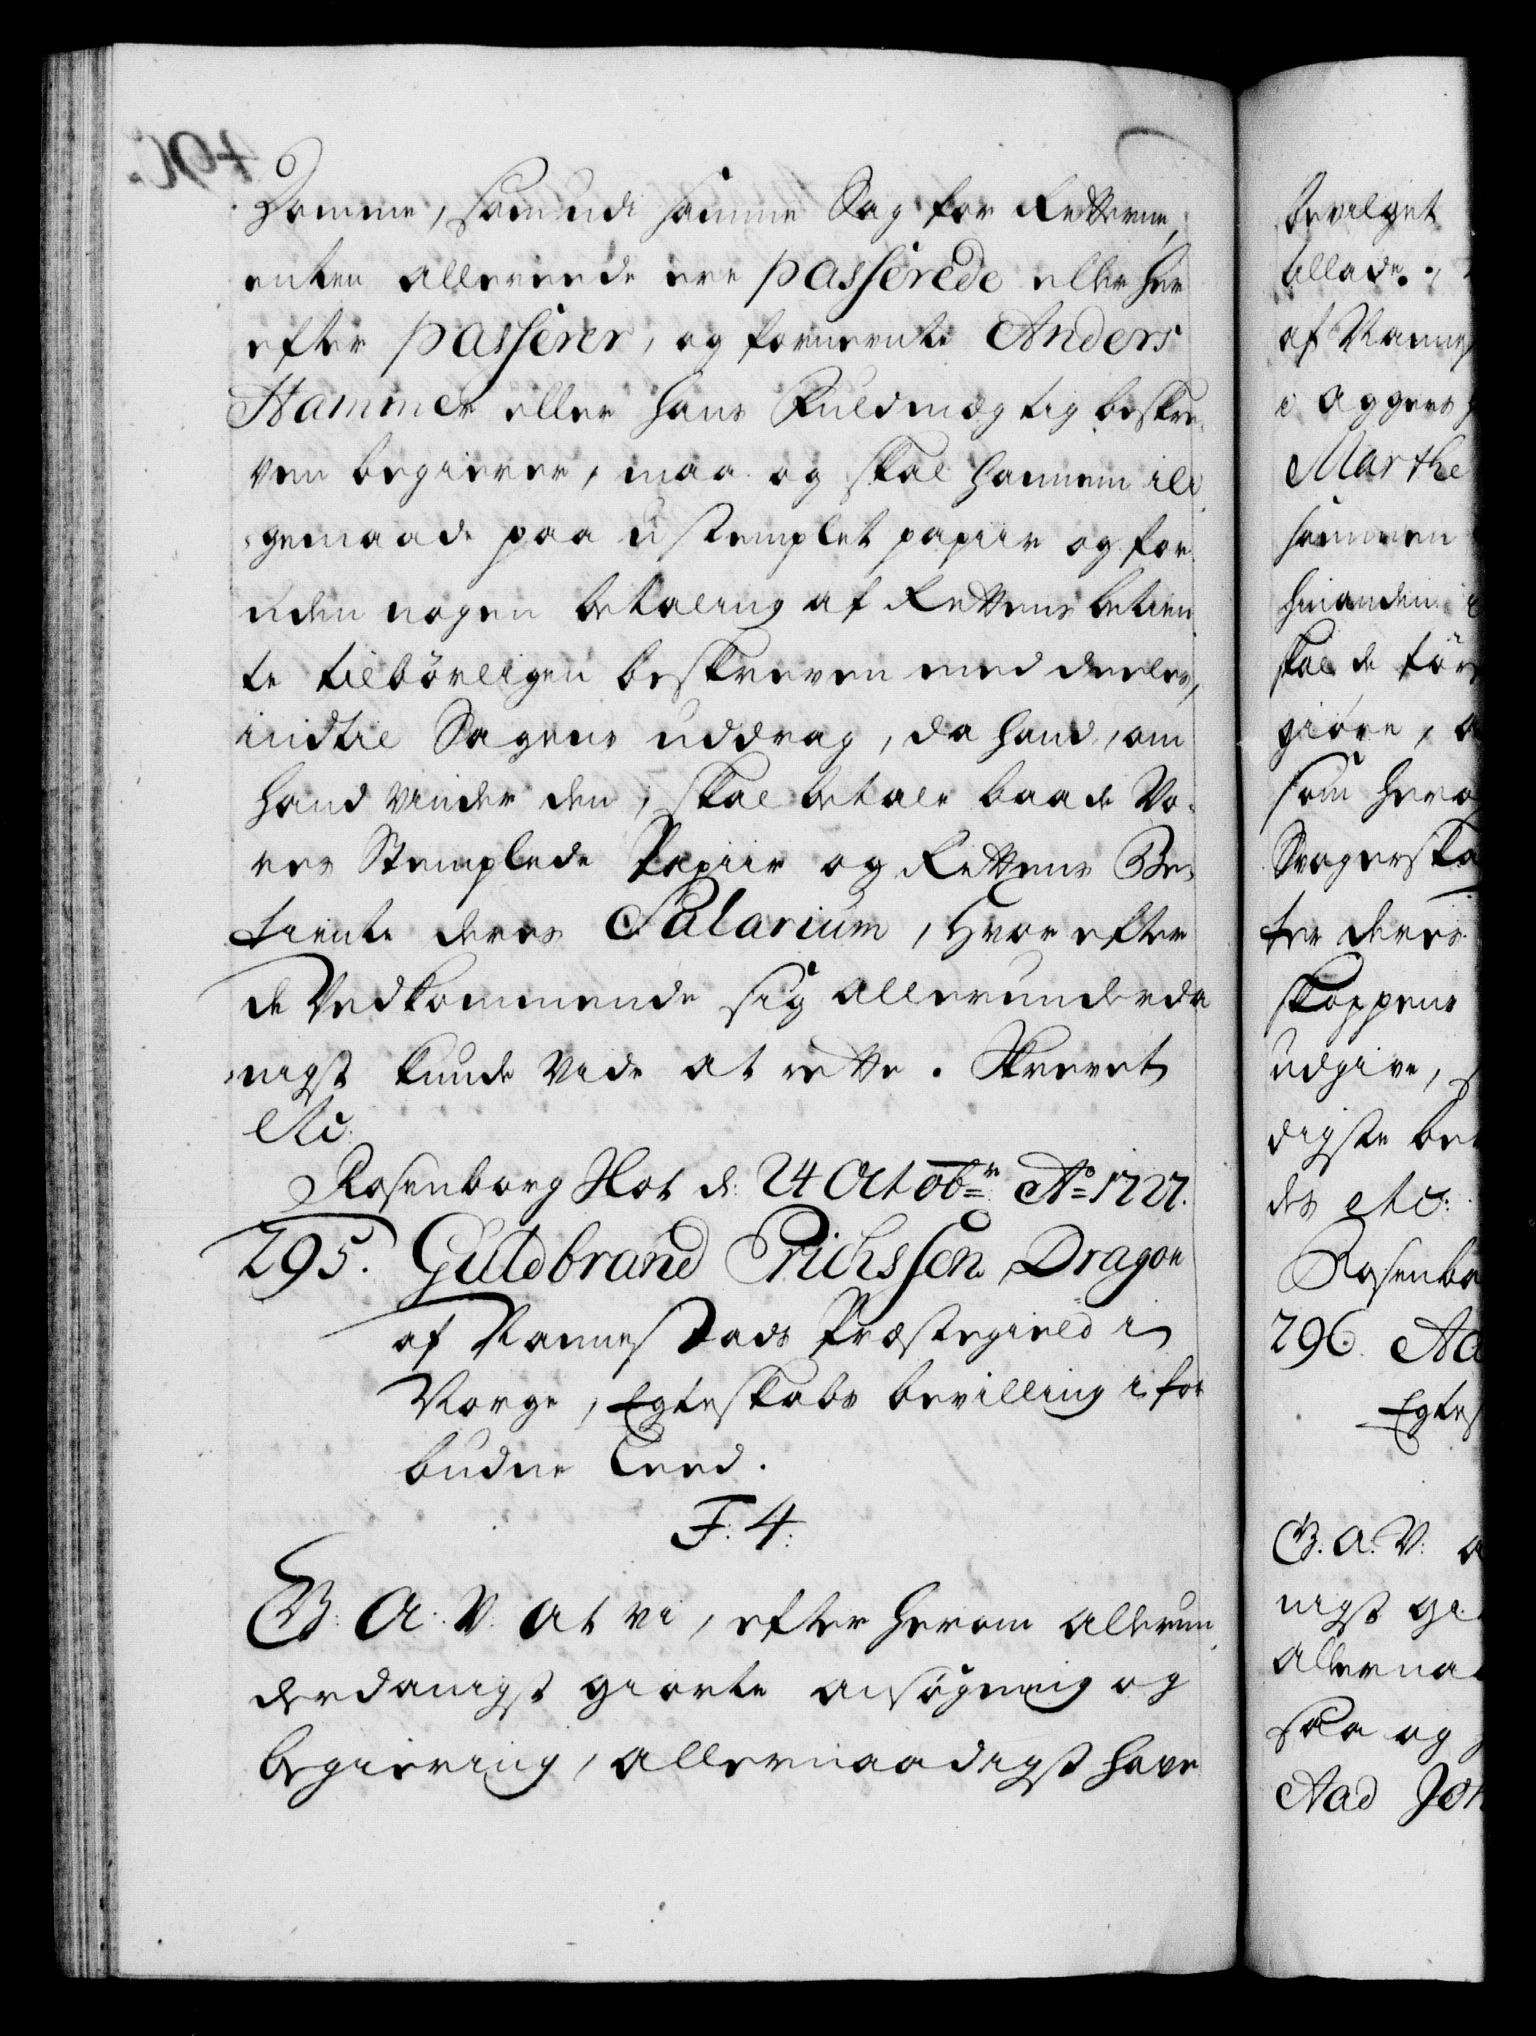 Domme, som udi samme Sag for Retterne,
enten allereede ere passerede eller her
efter passerer, og fornevnte Anders
Hammer eller hans Fuldmægtig beskre-
ven begierer, maa og skal hannem ili-
gemaade paa ustemplet papiir og for-
uden nogen betaling af Rettens betien-
te tilbørligen beskreven meddeeles,
indtil Sagens uddrag, da hand, om
hand vinder den, skal betale baade Vo-
res Stemplede Papiir og Rettens Be-
tiente deres Salarium, Hvor efter
de Vedkommende sig allerunderda
nigst kunde vide at rette. Skrevet
etc:
Rosenborg Slot d: 24 Octobr: Ao 1727.
295. Guldbrand Erichssen Dragon
af Nannestads Præstegield i
Norge, Egteskabs bevilling i for
budne Leed.
F: 4:
G: A: V: At vi, efter herom allerun-
derdanigst giorte ansøgning og
begiering, allernaadigst have
bevilget
tillade.
af Nannes
i Agger
Marthe
sammen
hinanden i
skal de før
giøre, a
som her
Svogerska
ter deres
skappens
udgive,
digste be
des etc:
Rosenbo
296. Aa
Egtes
G. A: V: a
nigst gi
Allerna
saa og
Aad Joh